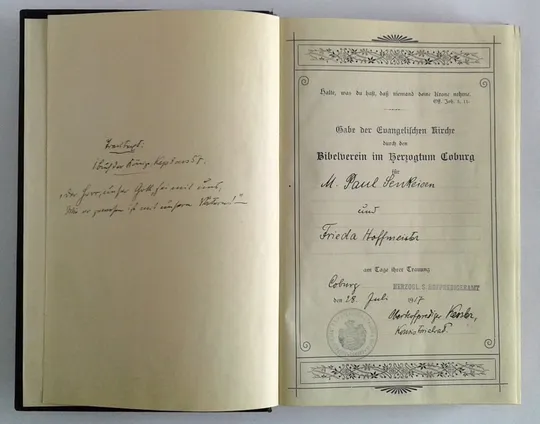 Trautext:
1 Buch der Könige Kap. 8 v. 57.
„Der Herr, unser Gott, sei mit uns,
wie er gewesen ist mit unsern Vätern!"
Halte, was du hast, daß niemand deine Krone nehme.
Off. Joh. 3, 11.
Gabe der Evangelischen Kirche
durch den
Bibelverein im Herzogtum Coburg
für
M. Paul
und
Frieda Hoffmeister
am Tage ihrer Trauung
Coburg HERZOGL. S. HOFPREDIGERAMT
den 28. Juli 1917
Oberhofprediger Kessler,